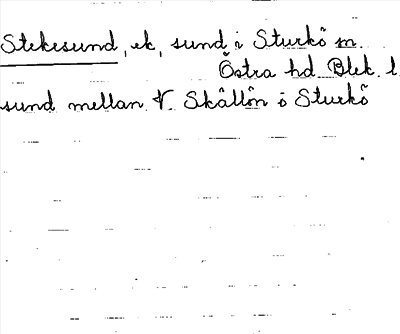 Stekesund, ek, sund i Sturkö sn.
Östra hd. Blek. l
sund mellan V. Skällön o Sturkö